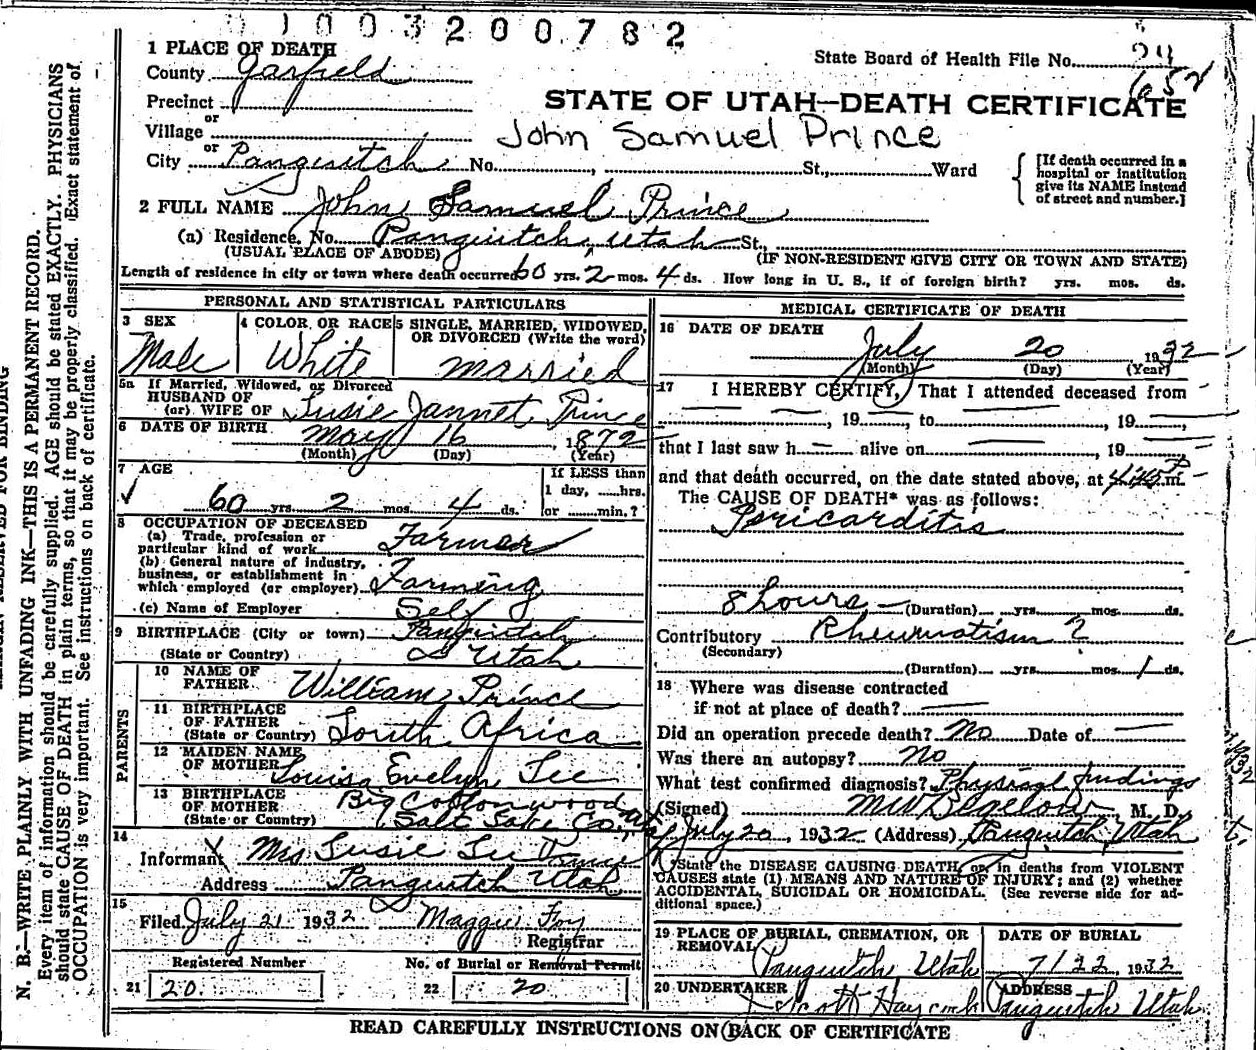 0 1 0 0 3 2 0 0 7 8 2
1 PLACE OF DEATH
County Garfield
State Board of Health File No. 24
652
Precinct
or
Village
STATE OF UTAH—DEATH CERTIFICATE
John Samuel Prince
or
City Panguitch No. , St., Ward
[If death occurred in a hospital or institution give its NAME instead of street and number.]
2 FULL NAME John Samuel Prince
(a) Residence, No. Panguitch, Utah St.,
(USUAL PLACE OF ABODE) (IF NON-RESIDENT GIVE CITY OR TOWN AND STATE)
Length of residence in city or town where death occurred 60 yrs. 2 mos. 4 ds. How long in U. S., if of foreign birth? yrs. mos. ds.
PERSONAL AND STATISTICAL PARTICULARS
3 SEX Male
4 COLOR OR RACE White
5 SINGLE, MARRIED, WIDOWED, OR DIVORCED (Write the word) Married
5a If Married, Widowed, or Divorced
HUSBAND OF
(or) WIFE OF Susie Jannet Prince
6 DATE OF BIRTH May 16, 1872
(Month) (Day) (Year)
7 AGE
60 yrs. 2 mos. 4 ds.
If LESS than
1 day, hrs.
or min.?
8 OCCUPATION OF DECEASED
(a) Trade, profession or
particular kind of work Farmer
(b) General nature of industry,
business, or establishment in
which employed (or employer) Farming
(c) Name of Employer Self
9 BIRTHPLACE (City or town) Panguitch
(State or Country) Utah
PARENTS
10 NAME OF
FATHER William Prince
11 BIRTHPLACE
OF FATHER
(State or Country) South Africa
12 MAIDEN NAME
OF MOTHER Louisa Evelyn Lee
13 BIRTHPLACE
OF MOTHER Big Cottonwood
(State or Country) Salt Lake Co., Utah
14
Informant Mrs Susie Lee Prince
Address Panguitch Utah
15
Filed July 21 1932 Maggie Foy
Registrar
Registered Number No. of Burial or Removal Permit
21 20 22 20
MEDICAL CERTIFICATE OF DEATH
16 DATE OF DEATH
July 20 1932
(Month) (Day) (Year)
17 I HEREBY CERTIFY, That I attended deceased from
, 19 , to , 19 ,
that I last saw h alive on , 19
and that death occurred, on the date stated above, at P m.
The CAUSE OF DEATH* was as follows:
Pericarditis
8 hours (Duration) yrs. mos. ds.
Contributory Rheumatism ?
(Secondary)
(Duration) yrs. mos. 1 ds.
18 Where was disease contracted
if not at place of death?
Did an operation precede death? No Date of
Was there an autopsy? No
What test confirmed diagnosis? Physical findings
(Signed) M. D.
July 20, 1932 (Address) Panguitch Utah
*State the DISEASE CAUSING DEATH, or in deaths from VIOLENT
CAUSES state (1) MEANS AND NATURE OF INJURY; and (2) whether
ACCIDENTAL, SUICIDAL OR HOMICIDAL. (See reverse side for ad-
ditional space.)
19 PLACE OF BURIAL, CREMATION, OR
REMOVAL Panguitch, Utah
DATE OF BURIAL
7/22 1932
20 UNDERTAKER Scott Haycock
ADDRESS Panguitch Utah
READ CAREFULLY INSTRUCTIONS ON BACK OF CERTIFICATE
RESERVED FOR BINDING
N. B.—WRITE PLAINLY WITH UNFADING INK—THIS IS A PERMANENT RECORD.
Every item of information should be carefully supplied. AGE should be stated EXACTLY. PHYSICIANS
should state CAUSE OF DEATH in plain terms, so that it may be properly classified. Exact statement of
OCCUPATION is very important. See instructions on back of certificate.